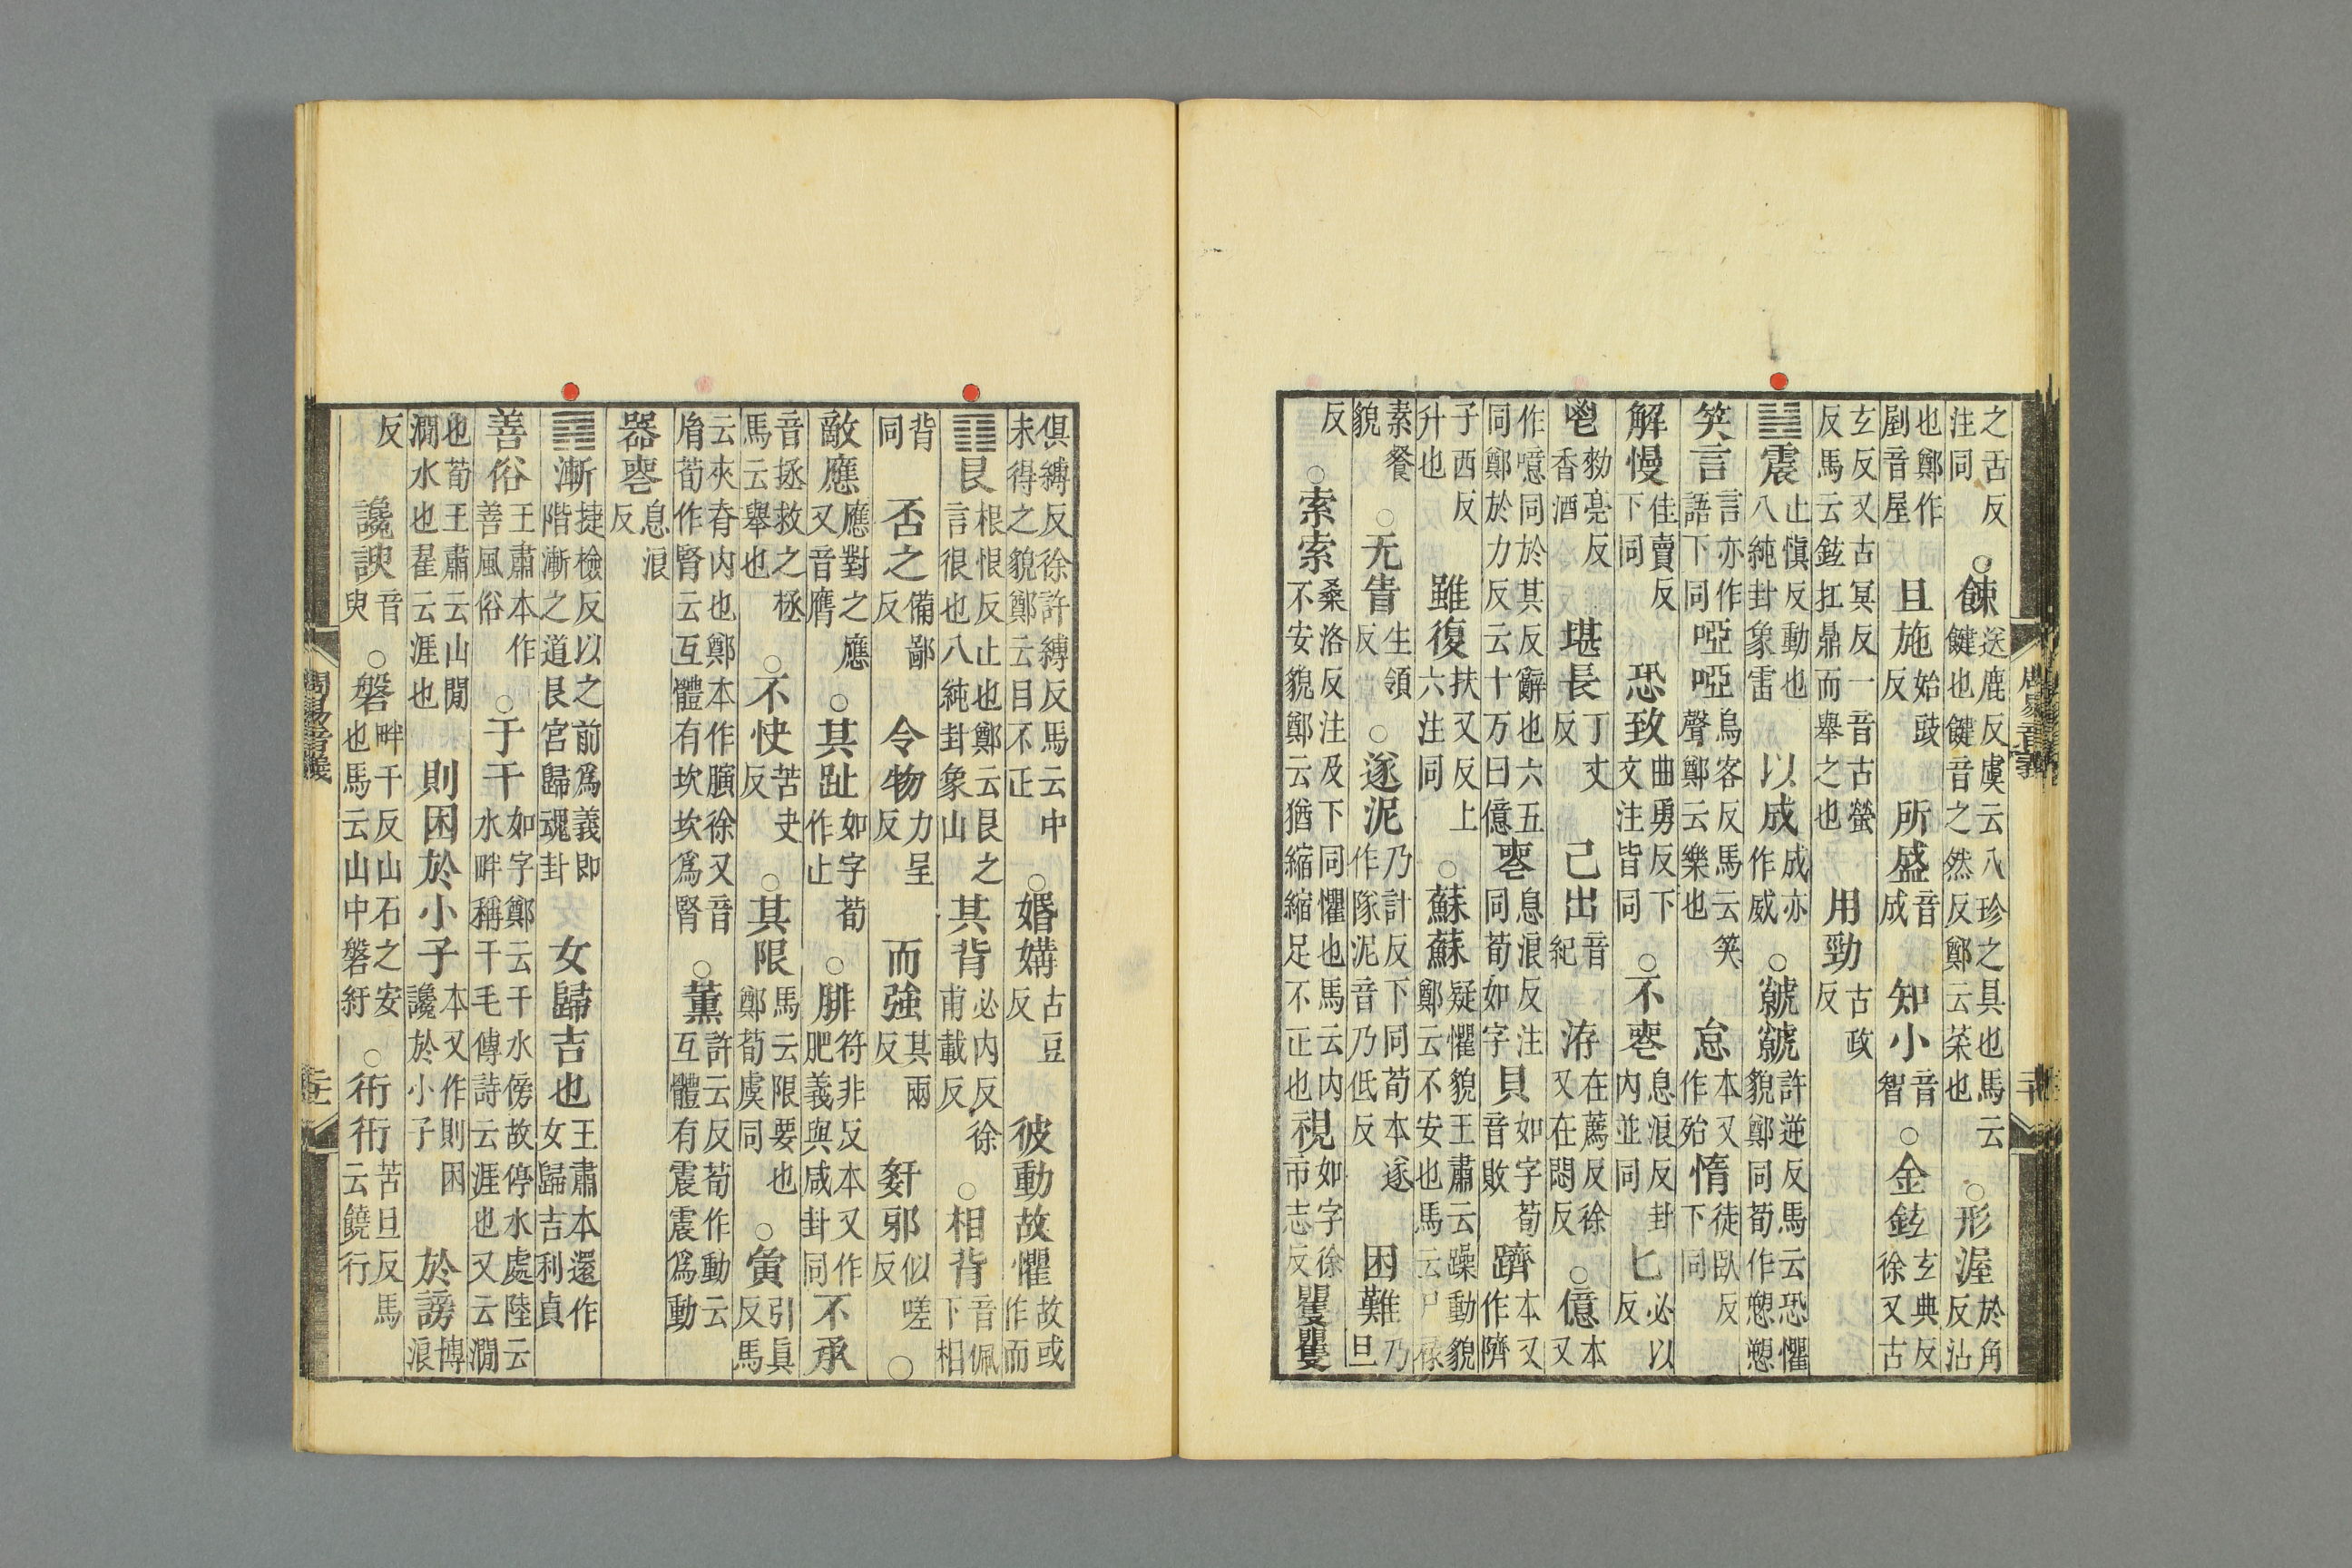 之舌反注同○餗送鹿反虞云八珍之具也馬云鍵也鍵音之然反鄭云菜也○形渥於角反沾
也鄭作剭音屋且施始豉反所盛音成知小音智○金鉉玄典反徐又古
玄反又古冥反一音古螢反馬云鉉扛鼎而舉之也用勁古政反
䷲震止愼反動也八純卦象雷以成成亦作威○虩虩許逆反馬云恐懼貌鄭同荀作愬愬
笑言言亦作語下同啞啞烏客反馬云笑聲鄭云樂也怠本又作殆惰徒臥反下同
解慢佳賣反下同恐致曲勇反下文注皆同○不喪息浪反卦内並同匕必以反
鬯勑亮反香酒堪長丁丈反己出音紀洊在薦反徐又在悶反○億本又
作噫同於其反辭也六五同鄭於力反云十万曰億喪息浪反注同荀如字貝如字荀音敗躋本又作隮
子西反升也雖復扶又反上六注同○蘇蘇疑懼貌王肅云躁動貌鄭云不安也馬云尸祿
素餐貌○无眚生領反○遂泥乃計反下同荀本遂作隊泥音乃低反困難乃旦
反○索索桑洛反注及下同懼也馬云内不安貌鄭云猶縮縮足不正也視如字徐市志反矍矍
周易音義
俱縛反徐許縛反馬云中未得之貌鄭云目不正○婚媾古豆反彼動故懼故或作而
䷳艮根恨反止也鄭云艮之言很也八純卦象山其背必内反徐甫載反○相背音佩下相
背同否之備鄙反令物力呈反而強其兩反姧邪似嗟反○
敵應應對之應又音膺○其趾如字荀作止○腓符非反本又作肥義與咸卦同不承
音拯救之拯馬云舉也○不快苦夬反○其限馬云限要也鄭荀虞同○夤引眞反馬
云夾脊内也鄭本作䐄徐又音胤荀作腎云互體有坎坎爲腎○薰許云反荀作動云互體有震震爲動
器喪息浪反
䷴漸捷檢反以之前爲義即階漸之道艮宮歸魂卦女歸吉也王肅本還作女歸吉利貞
善俗王肅本作善風俗○于干如字鄭云干水傍故停水處陸云水畔稱干毛傳詩云涯也又云澗
也荀王肅云山閒澗水也翟云涯也則困於小子本又作則困讒於小子於謗博浪
反讒諛音臾○磐畔干反山石之安也馬云山中磐紆○衎衎苦旦反馬云饒衍
周易音義